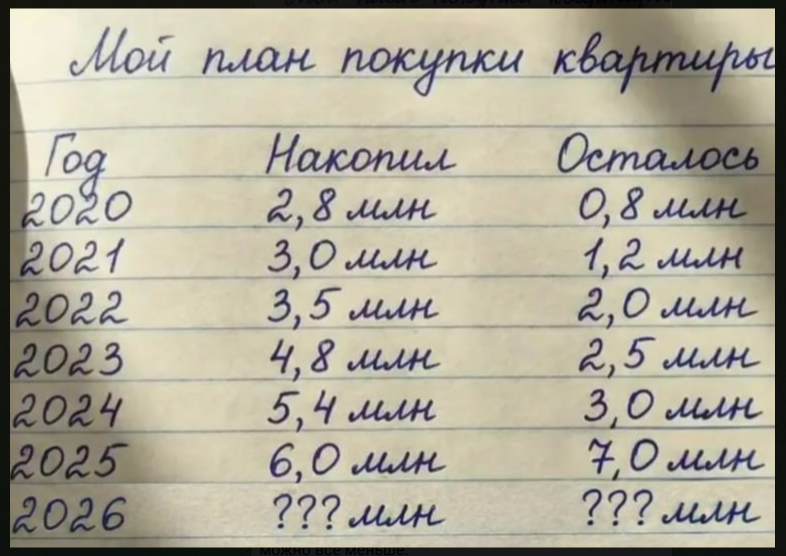 Мой план покупки квартиры
Год Накопил Осталось
2020 2,8 млн 0,8 млн
2021 3,0 млн 1,2 млн
2022 3,5 млн 2,0 млн
2023 4,8 млн 2,5 млн
2024 5,4 млн 3,0 млн
2025 6,0 млн 7,0 млн
2026 ??? млн ??? млн
можно все меньше.